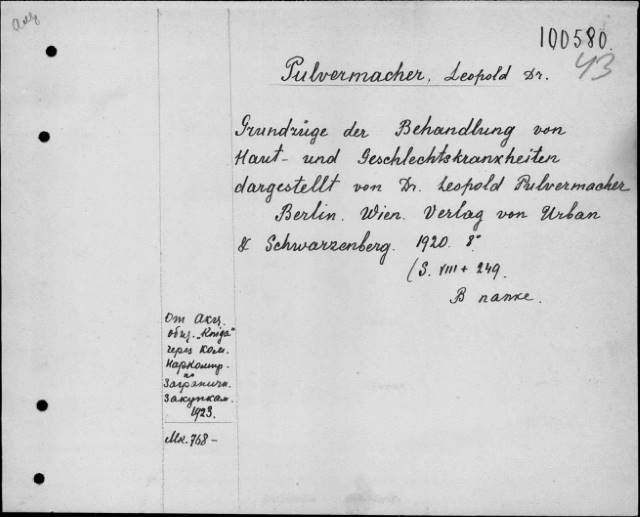 100580.
43
Pulvermacher, Leopold Dr.
Grundzüge der Behandlung von
Haut- und Geschlechtskrankheiten
dargestellt von Dr. Leopold Pulvermacher
Berlin. Wien. Verlag von Urban
& Schwarzenberg. 1920. 8°
(S. VIII + 249.
В папке.
От Акц.
общ. „Kniga"
через Ком.
Наркомпр.
по
Загранич.
Закупкам.
1923.
Мк. 768 –